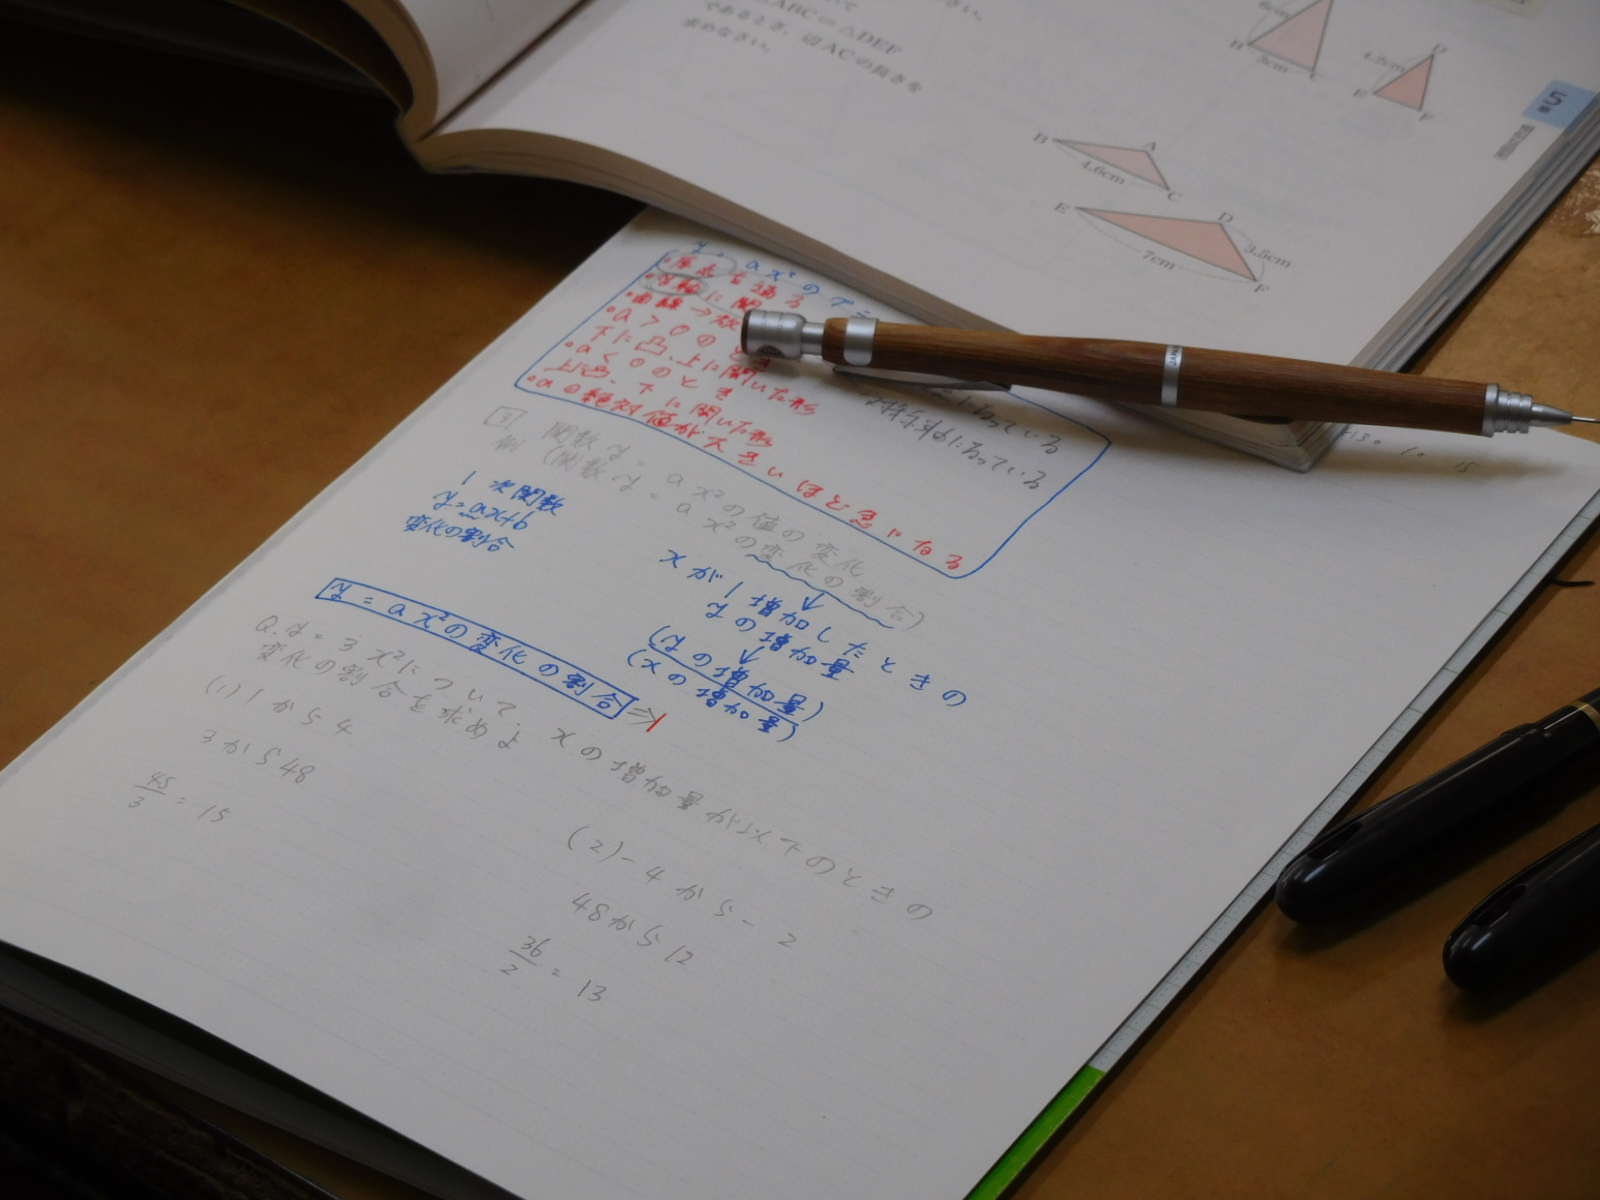 △ABC∽△DEF
であるとき、辺ACの長さを
求めなさい。
B
3cm
C
4.2cm
D
E
F
B
A
4.6cm
C
E
D
7cm
3.5cm
F
5
y=ax²の
・原点を通る
・y軸に関
・曲線→放
・a>0のとき
下に凸、上に開いた形
・a<0のとき
上に凸、下に開いた形
・aの絶対値が大きいほど急になる
になっている
対称軸になっている
3 関数y=ax²の値の変化
例 (関数y=ax²の変化の割合)
1次関数
y=ax+b
変化の割合
↑
xが1増加したときの
yの増加量
↓
(yの増加量)
(xの増加量)
y=ax²の変化の割合
Q.y=3x²について、xの増加量が以下のときの
変化の割合を求めよ
(1)1から4
3から48
45/3=15
(2)-4から-2
48から12
36/2=13